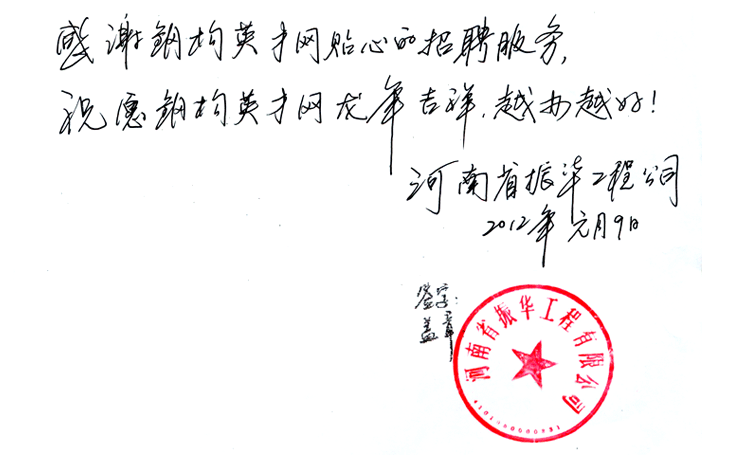 感谢钢构英才网贴心的招聘服务,
祝愿钢构英才网龙年吉祥,越办越好!
河南省振华工程公司
2012年元月9日
签字:
盖章
河南省振华工程有限公司